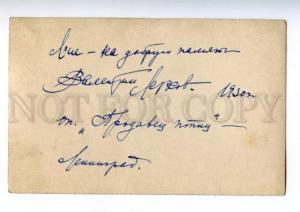 на добрую память
Валентин 1930 г.
оп. „Продавец птиц" —
Ленинград.
NOT FOR COPY